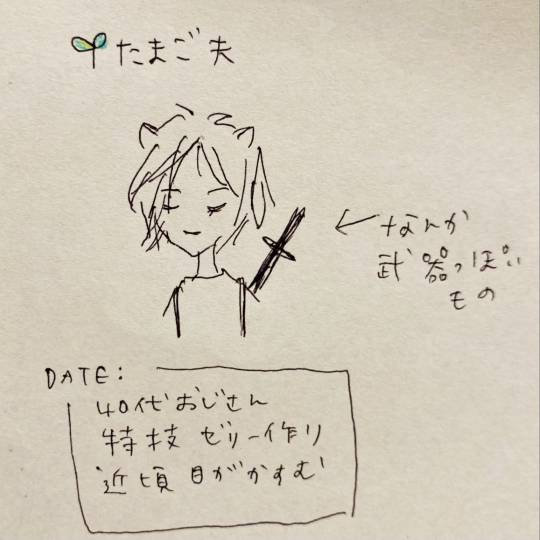 たまご夫
なんか
武器っぽい
もの
DATE:
40代おじさん
特技 ゼリー作り
近頃 目がかすむ